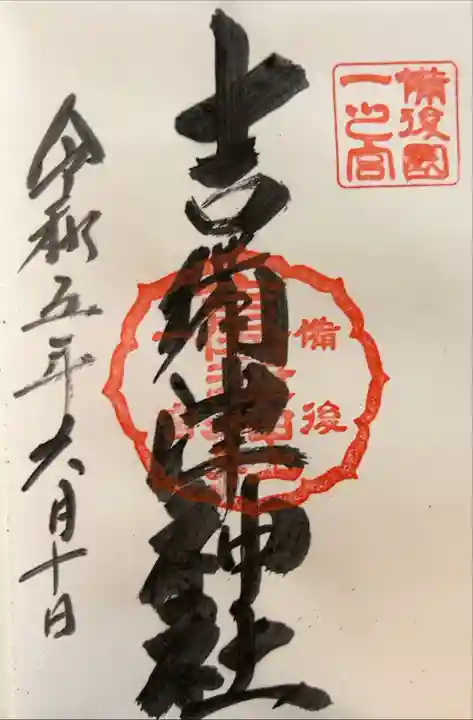 備後國
一之宮
吉備津神社
備後
令和五年六月十日